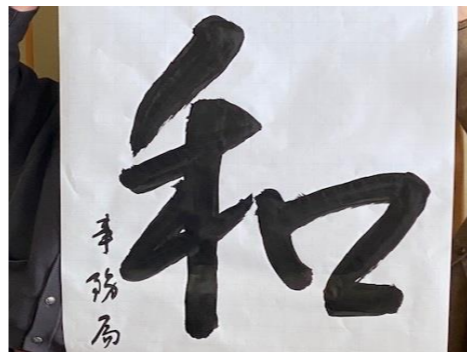 和
事務局